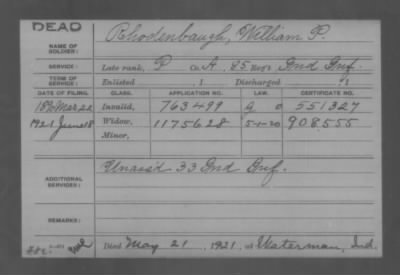 DEAD
NAME OF SOLDIER: Rhodenbaugh, William P.
SERVICE: Late rank, P Co. A, 85 Reg't Ind Inf.
TERM OF SERVICE: Enlisted , 1 Discharged , 1
DATE OF FILING. CLASS. APPLICATION NO. LAW. CERTIFICATE NO.
Mar 22 Invalid, 763499 551327
1921 June 18 Widow, 1175628 5-1-20 908555
Minor,
ADDITIONAL SERVICES: Unass'd 33 Ind Inf.
REMARKS:
Died May 21, 1921, at Waterman, Ind.